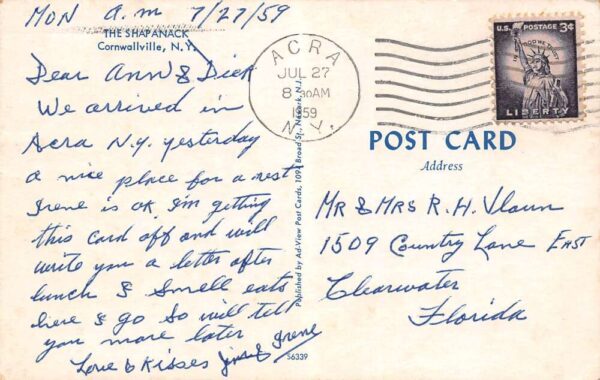 MON a.m 7/27/59
THE SHAPANACK
Cornwallville, N.Y.
Dear Ann & Dick
We arrived in
Acra N.Y. yesterday
a nice place for a rest
Irene is OK. I'm getting
this card off and will
write you a letter after
lunch I smell eats
here I go So will tell
you more later
Love & Kisses Jim & Irene
56339
Published by Ad-View Post Cards, 109 Broad St., Newark, N.J.
ACRA
JUL 27
8 30AM
1959
N.Y.
U.S. POSTAGE 3¢
IN GOD WE TRUST
LIBERTY
POST CARD
Address
MR & MRS R. H.
1509 Country Lane EAST
Clearwater
Florida